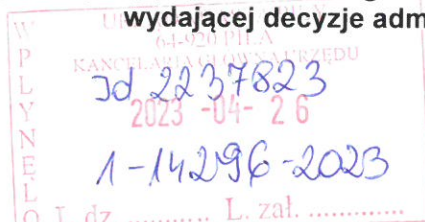 wydającej decyzje adm
U
64-920 PIŁA
KANCELARIA GŁÓWNA URZĘDU
WPŁYNĘŁO
Id 2237823
2023 -04- 26
1-14296-2023
L. dz. ............ L. zał. ............